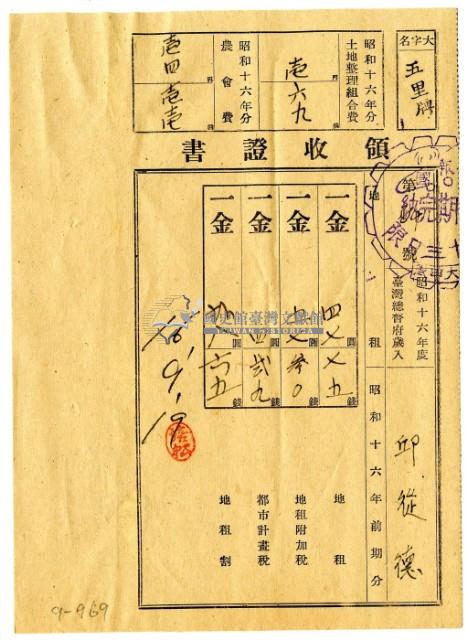 大字名
五里牌
昭和十六年分
土地整理組合費
壱六九
圓
錢
昭和十六年分
農會費
壱四壱壱
圓
錢
領收證書
第
號
納期限
昭和十六年度
臺灣總督府歲入
邱從德
地租
昭和十六年前期分
一金
四七七五
圓
錢
地租
一金
圓
錢
地租附加稅
一金
四貳九
圓
錢
都市計畫稅
一金
六五
圓
錢
地租割
16,9,19
國史館臺灣文獻館
TAIWAN HISTORICA
9-969